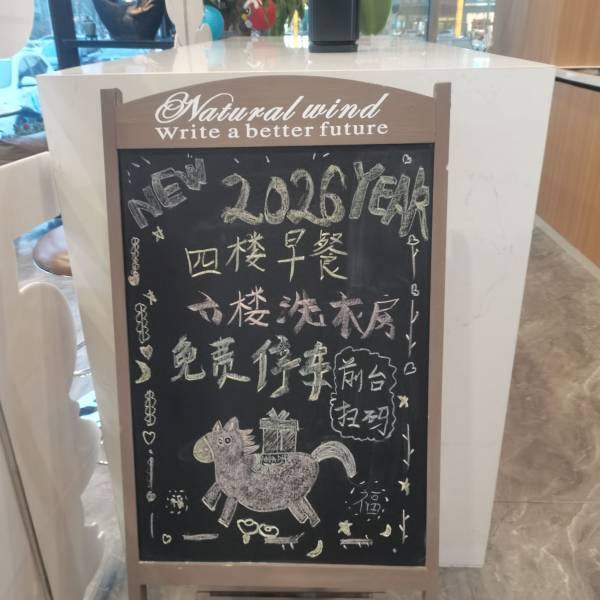 Natural wind
Write a better future
NEW 2026 YEAR
四楼早餐
六楼洗衣房
免责停车
前台
扫码
福
福